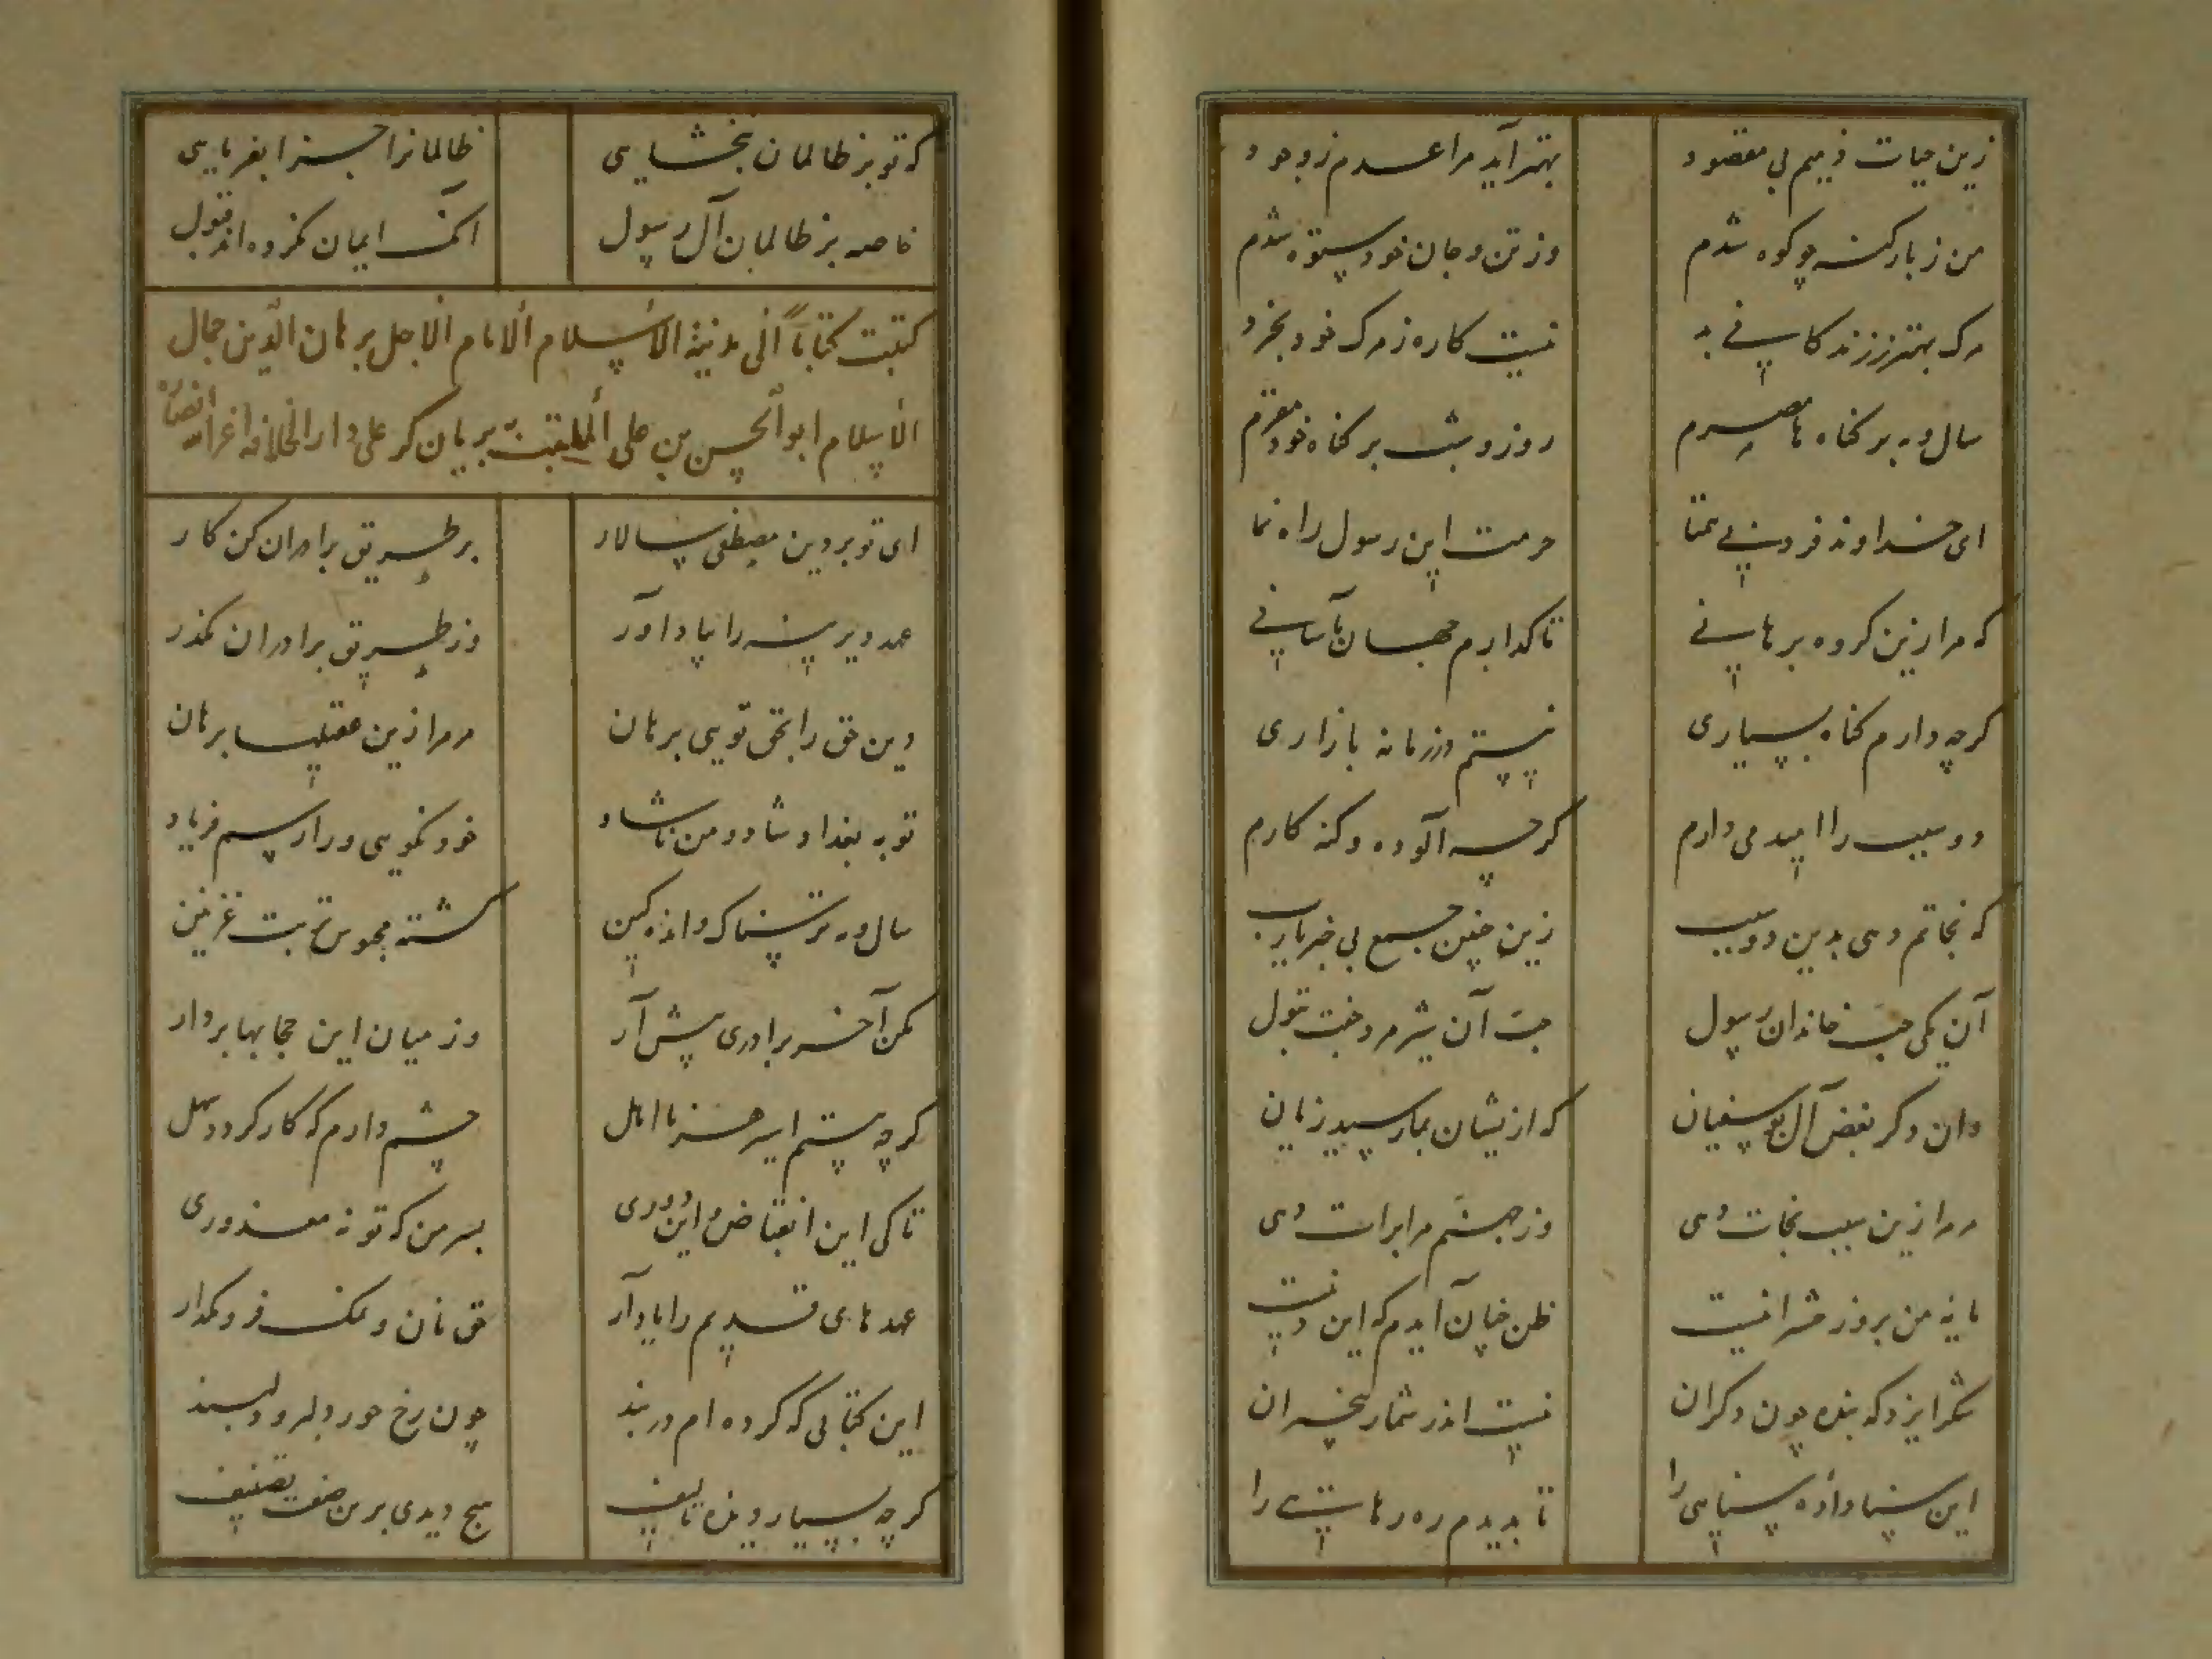 زین حیات ذمیم بی مقصود
بهتر آید مرا عدم ز وجود
من ز بار گنه چو کوه شدم
وز تن و جان خود ستوه شدم
مرگ بهتر ز زندگانی بد
نیست کاره ز مرگ خود بخرد
سال و مه بر گناه ها مصرم
روز و شب بر گناه خود مقرم
ای خداوند فرد بی همتا
حرمت این رسول راه نما
که مرا زین گروه برهانی
تا گذارم جهان بآسانی
گرچه دارم گناه بسیاری
نیستم در زمانه بازاری
دو سبب را امید می دارم
گرچه آلوده و گنه کارم
که نجاتم دهی بدین دو سبب
زین چنین جمع بی خبر یارب
آن یکی حب خاندان رسول
حب آن شیر مرد جفت بتول
وان دگر بغض آل بوسفیان
که ازیشان بما رسید زیان
مر مرا زین سبب نجات دهی
وز جهنم مرا برات دهی
مایه من بروز حشر اینست
ظن چنان آیدم که این دینست
شکر ایزد که بنده چون دگران
نیست اندر شمار بیخبران
این سنا داده سنایی را
تا بدیدم ره رهایی را
که تو بر ظالمان نبخشایی
ظالمانرا جزا بفرمایی
خاصه بر ظالمان آل رسول
آنک ایمان نکرده اند قبول
کتبت کتابا الی مدینة الاسلام الامام الاجل برهان الدین جمال
الاسلام ابو الحسن بن علی الملقب به بریان گر علی دار الخلافه اعز الله انصاره
ای تو بر دین مصطفی سالار
بر طریق برادران کن کار
عهد دیرینه را بیاد آور
وز طریق برادران مگذر
دین حق را بحق تویی برهان
مر مرا زین عقیلها برهان
تو به بغداد شاد و من ناشاد
خود نگویی ورا رسم فریاد
سال و مه ترسناک و اندهگین
گشته محبوس تربت غزنین
مکن آخر برادری پیش آر
وز میان این حجابها بردار
گرچه هستم اسیر هر نا اهل
چشم دارم که کار گردد سهل
تا کی این انقباض و این دوری
بسر من که تو نه معذوری
عهدهای قدیم را یاد آر
حق نان و نمک فرو مگذار
این کتابی که کرده ام در بند
چون رخ حور دلبر و دلبند
گرچه بسیار دیده تالیف
هیچ دیدی برین صفت تصنیف